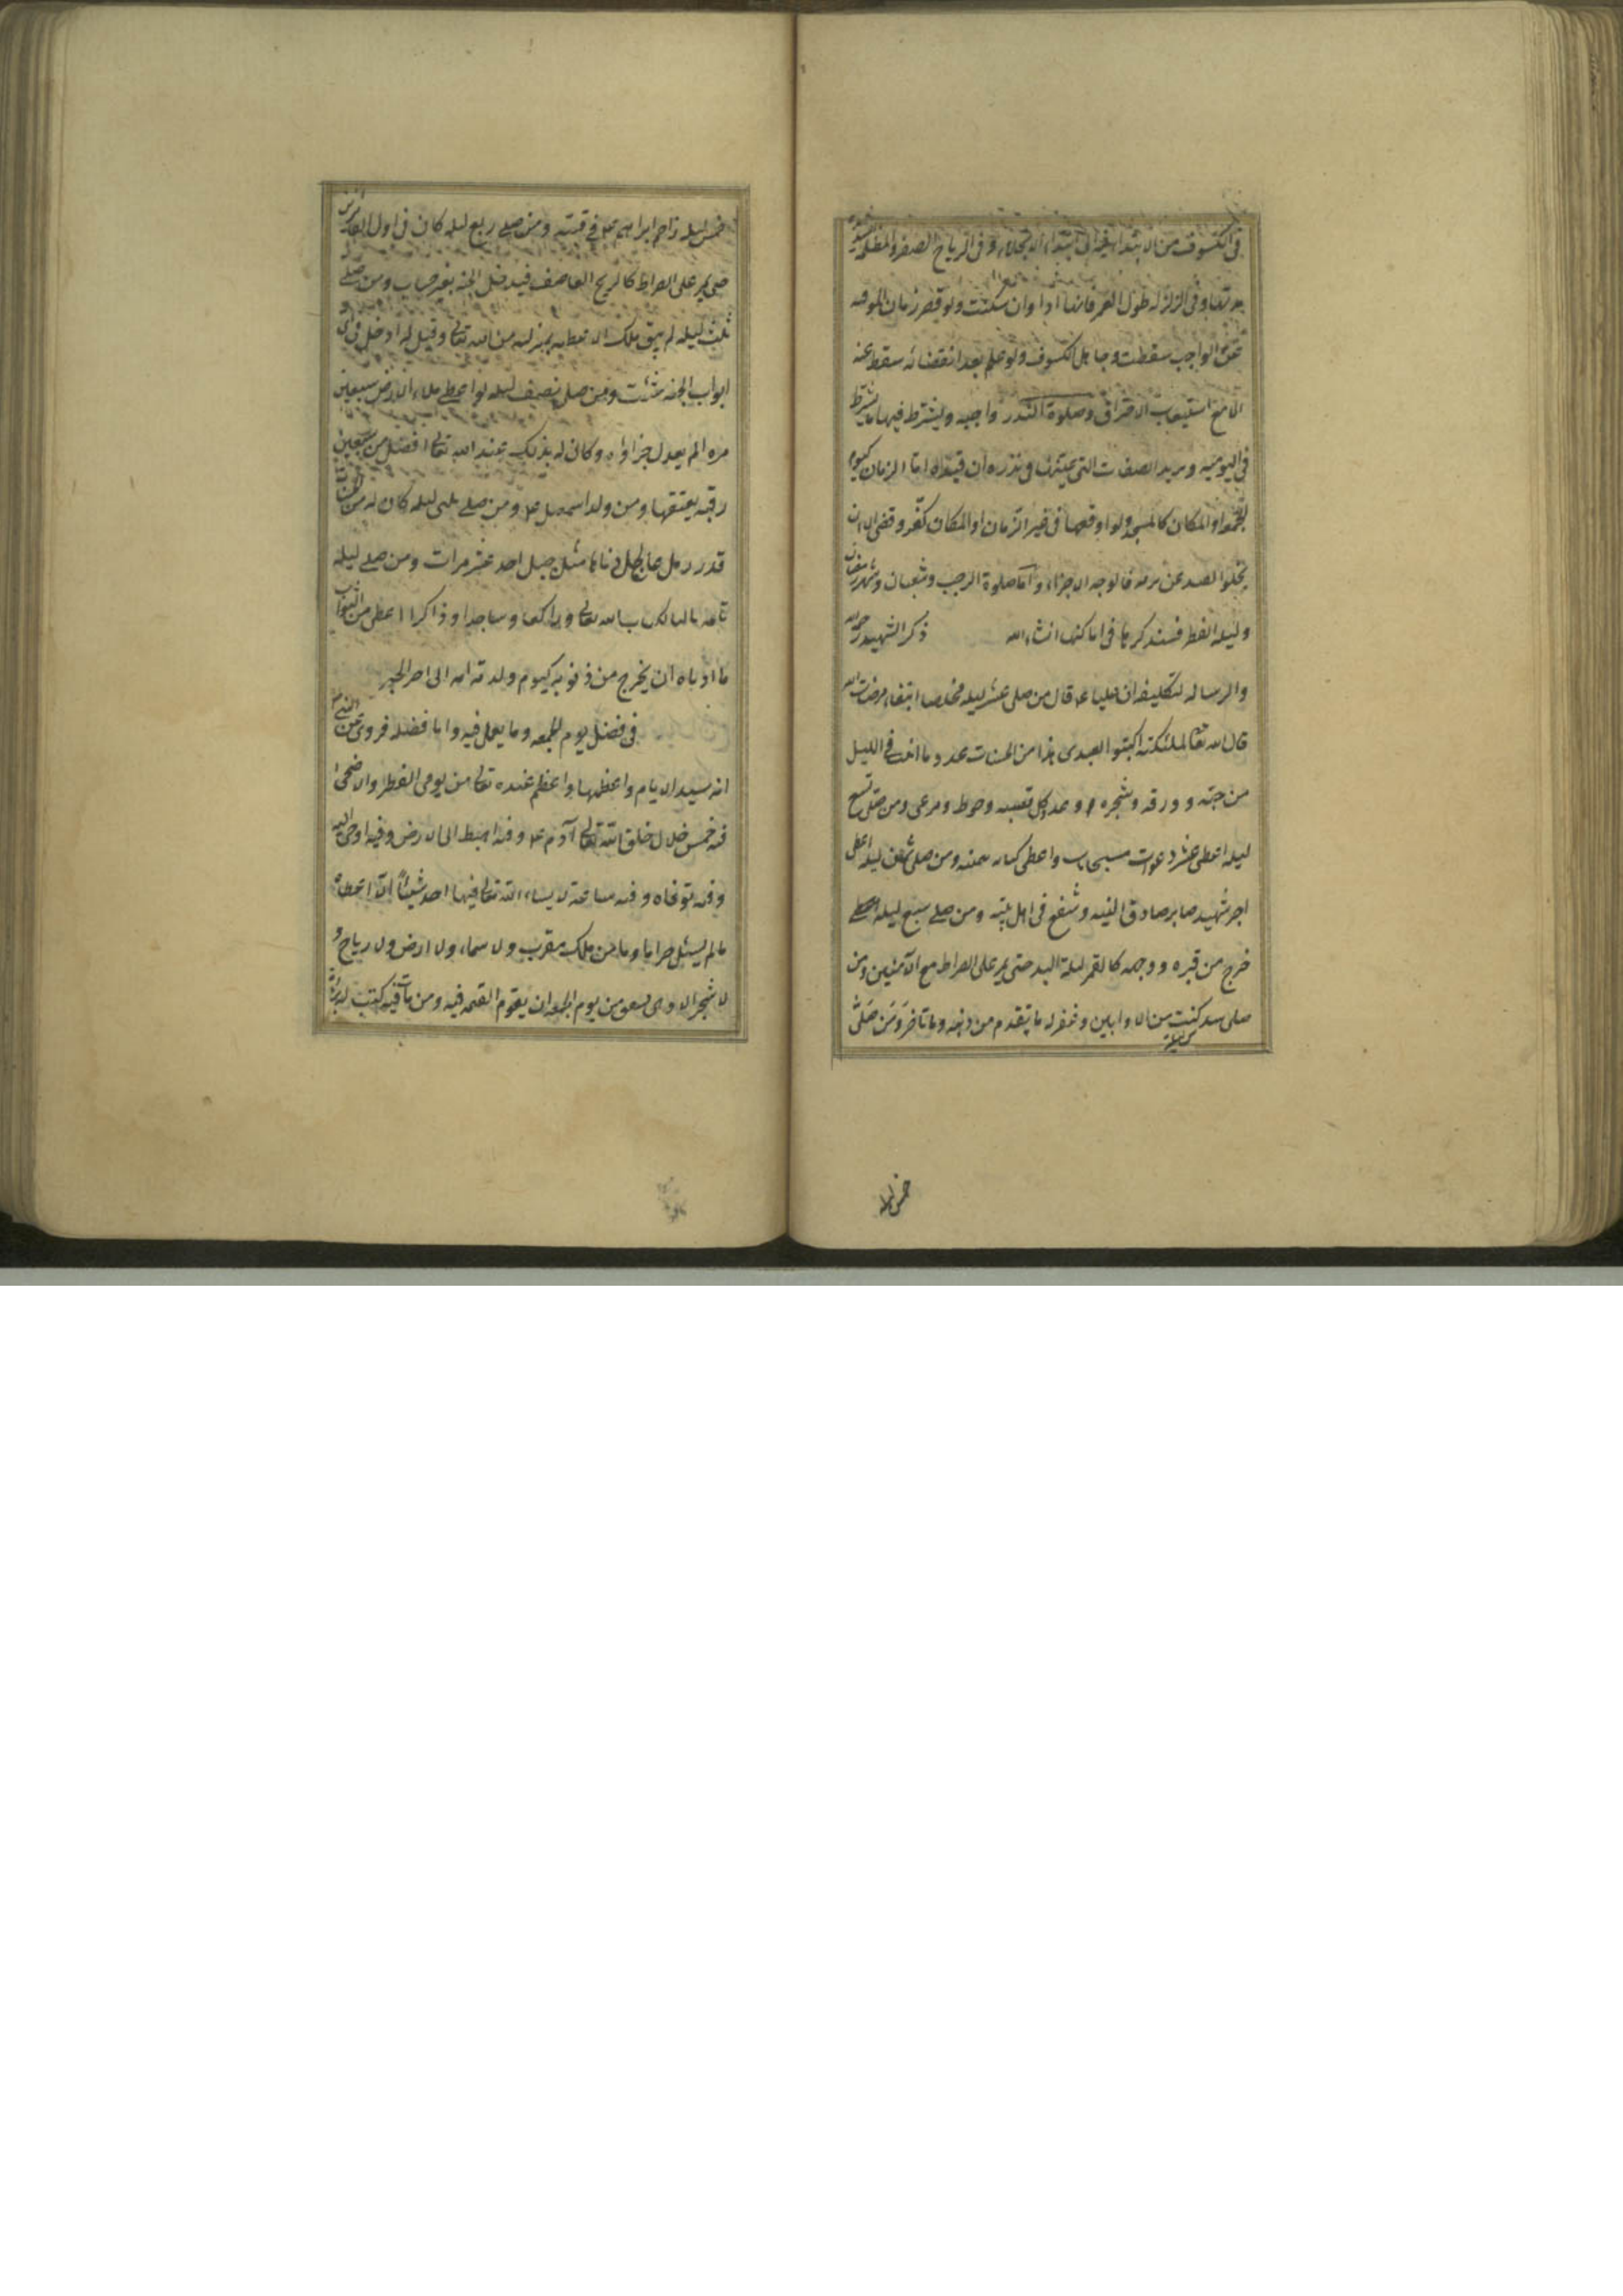 فى الكسوف من الابتداء فيه الى ابتداء الانجلاء وفى الرياح الصفر والمظلمه
مدتها وفى الزلزله طول العمر فانها اداء وان سكنت ولو قصر زمان الموقته
عن الواجب سقطت وجاهل الكسوف ولو علم بعد انقضائه سقط عنه
الا مع استيعاب الاحتراق وصلوة النذر واجبه ويشترط فيها ما يشترط
فى اليوميه ويزيد الصفات التى عينها فى نذره ان قيده اما الزمان كيوم
الجمعه او المكان كالمسجد ولو اوقعها فى غير الزمان او المكان كفّر وقضى الا ان
يخلوا القيد عن مزيه فالوجه الاجزاء واما صلوة الرجب وشعبان وشهر رمضان
وليله الفطر فسنذكرها فى اماكنها انشاء الله ذكر الشهيد رحمه الله
والرساله لتكليف ان عليا ع قال من صلى عشر ليله مخلصا ابتغاء مرضات الله
قال الله تعالى لملئكته اكتبوا لعبدى هذا من الحسنات عدد ما انبت فى الليل
من حبه وورقه وشجره وعدد كل قصبه وخوط ومرعى ومن صلى تسع
ليله اعطى عشر دعوات مستجاب واعطى كتابه بيمينه ومن صلى ثمن ليله اعطى
اجر شهيد صابر صادق النيه وشفع فى اهل بيته ومن صلى سبع ليله
خرج من قبره ووجهه كالقمر ليلة البدر حتى يمر على الصراط مع الآمنين ومن
صلى سدس كتب من الاوابين وغفر له ما تقدم من ذنبه وما تاخر ومن صلى
خمس ليله
خمس ليله زاحم ابراهيم ع فى قبته ومن صلى ربع ليله كان فى اول الفائزين
حتى يمر على الصراط كالريح العاصف فيدخل الجنه بغير حساب ومن صلى
ثلث ليله لم يبق ملك الا غبطه بمنزلته من الله تعالى وقيل له ادخل من اى
ابواب الجنه شئت ومن صلى نصف ليله لو اعطى ملاء الارض سبعين
مره الم يعدل جزاؤه وكان له بذلك عند الله تعالى افضل من سبعين
رقبه يعتقها من ولد اسمعيل ع ومن صلى ثلثى ليله كان له من الحسنات
قدر رمل عالج ادناها مثل جبل احد عشر مرات ومن صلى ليله
تامه تاليا لكتاب الله تعالى وراكعا وساجدا وذاكرا اعطى من الثواب
ما ادناه ان يخرج من ذنوبه كيوم ولدته امه الى اخر الخبر
فى فضل يوم الجمعه وما يعمل فيه واما فضله فروى عن النبى ص
انه سيد الايام واعظمها واعظم عنده تعالى من يومى الفطر والاضحى
فيه خمس خلال خلق الله تعالى آدم ع وفيه اهبط الى الارض وفيه اوحى اليه
وفيه توفاه وفيه ساعة لا يساءل الله تعالى فيها احد شيئاً الّا اعطاه
ما لم يسئل حراما وما من ملك مقرب ولا سماء ولا ارض ولا رياح و
لا شجر الا وهى تشفق من يوم الجمعه ان يقوم القيمه فيه ومن مات فيه كتب له براءة